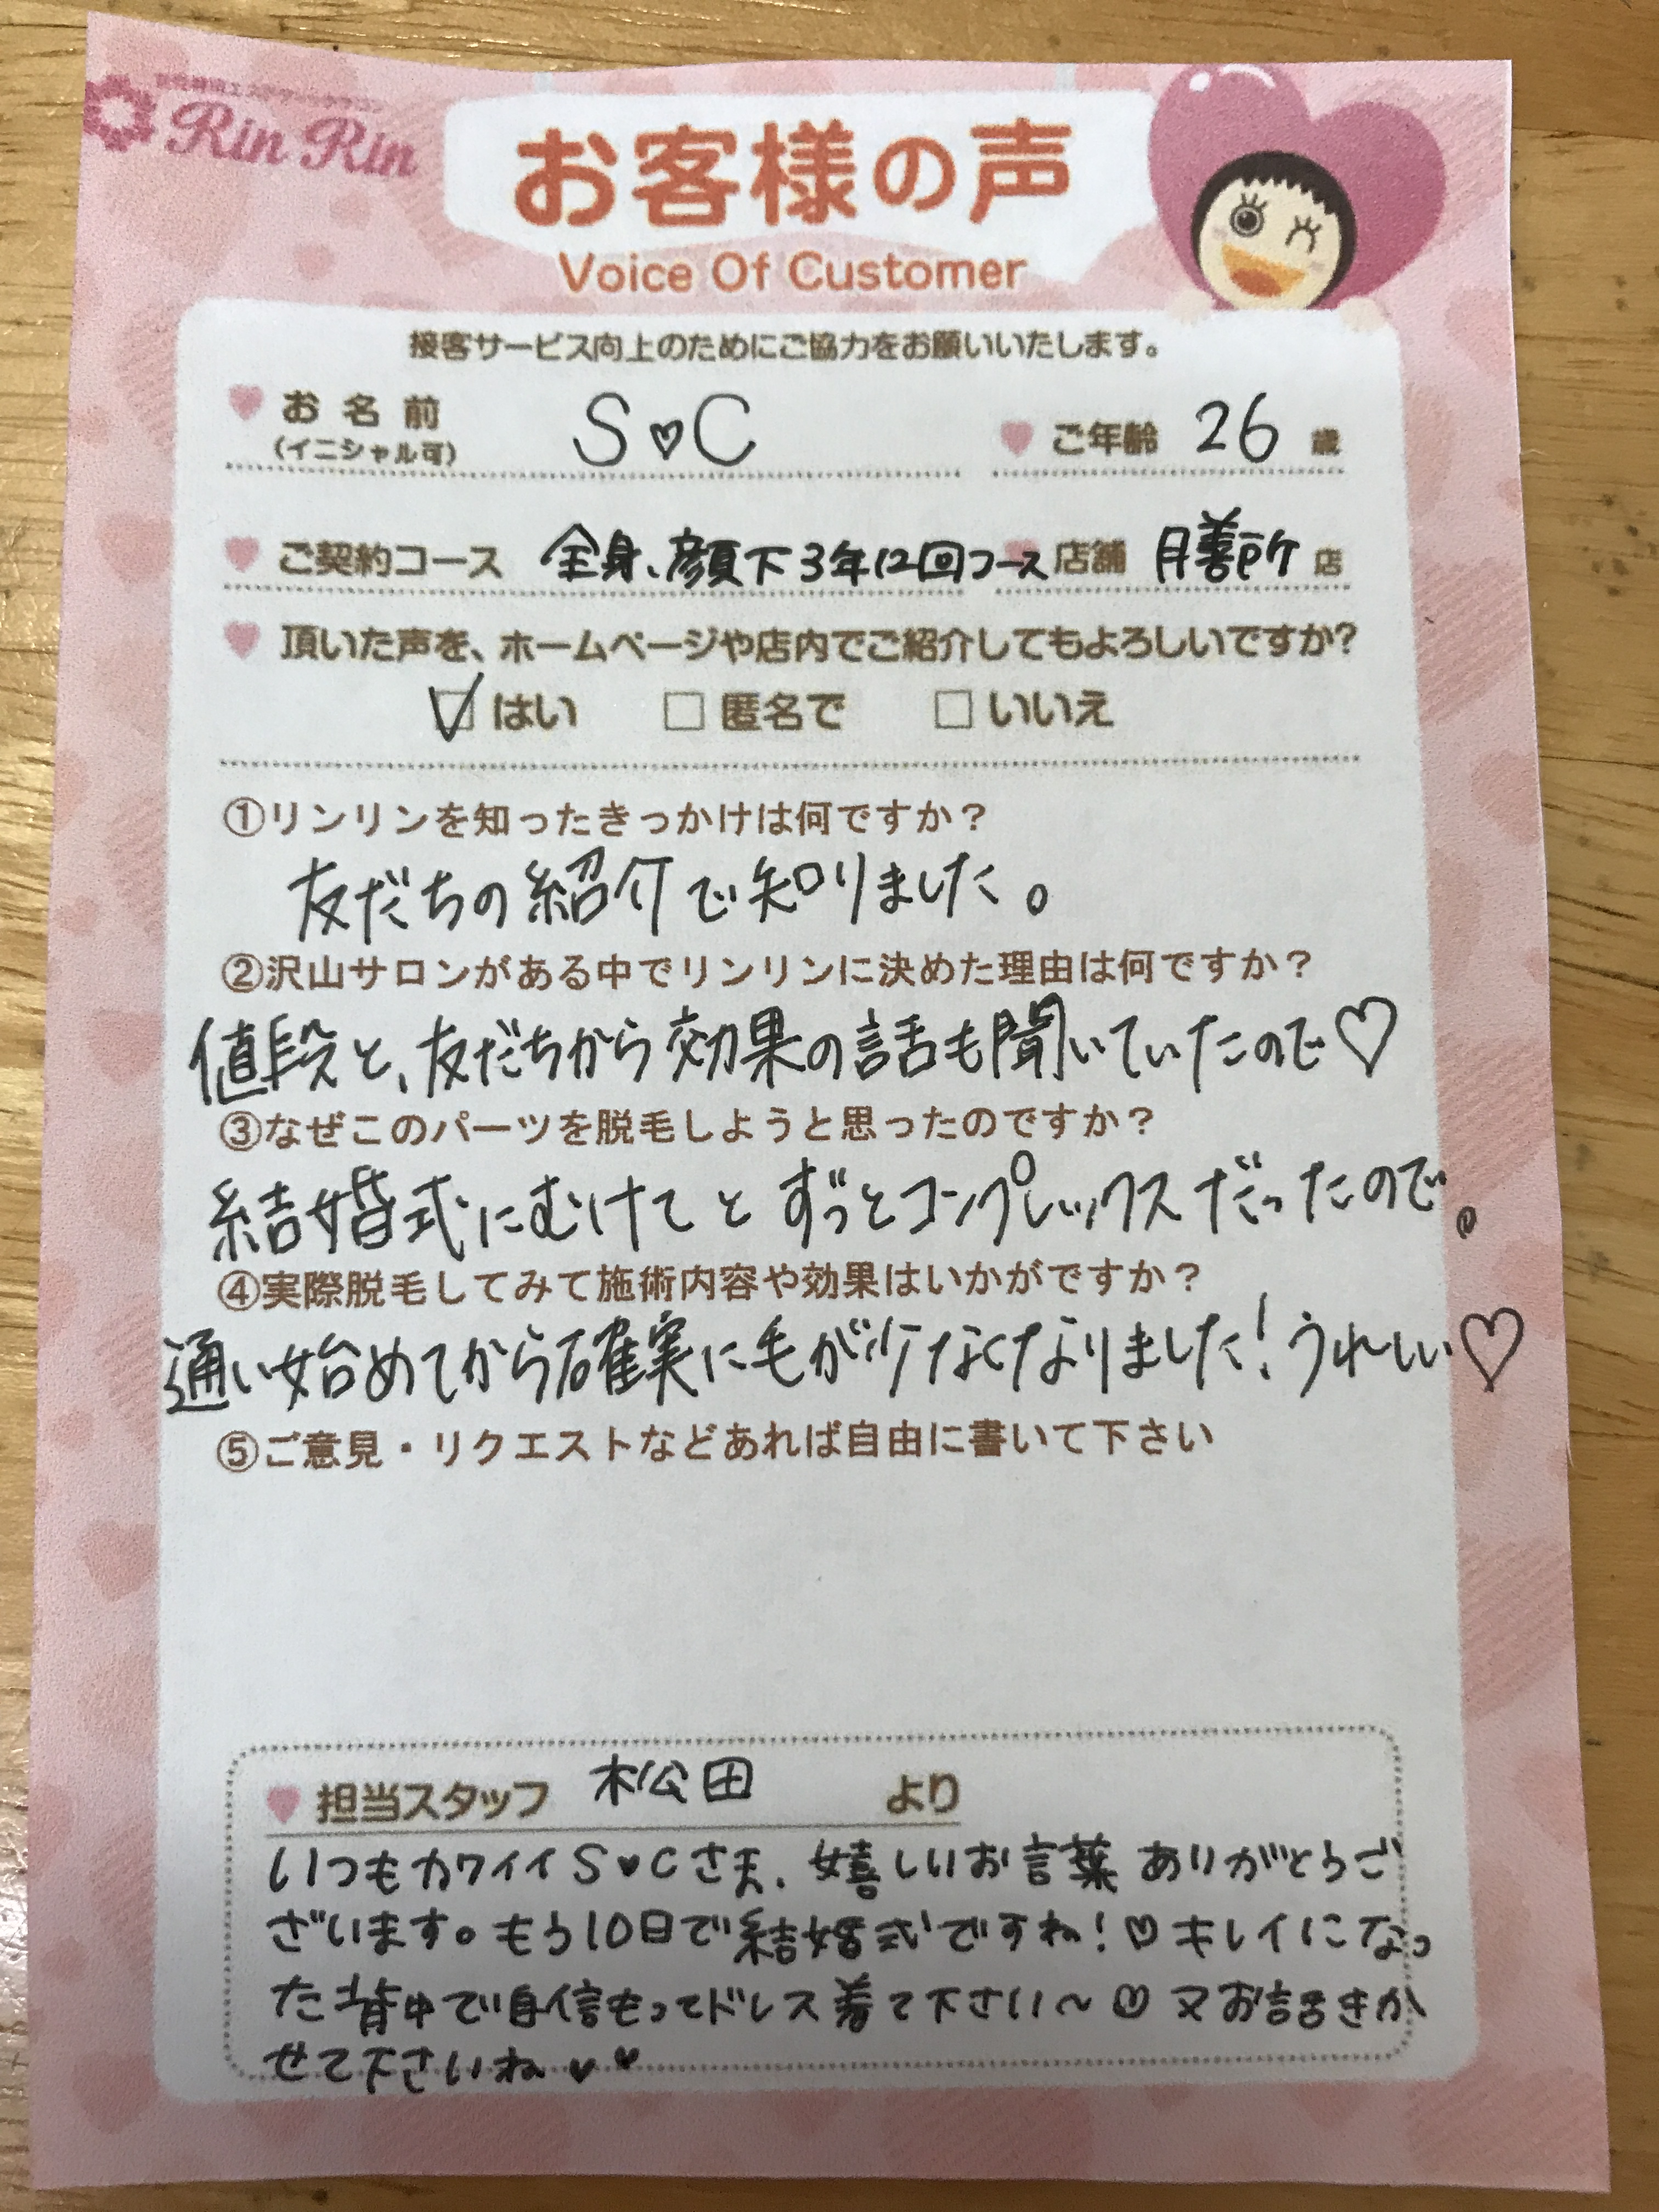 Rin Rin
お客様の声
Voice Of Customer
接客サービス向上のためにご協力をお願いいたします。
お名前 S♡C ご年齢 26 歳
(イニシャル可)
ご契約コース 全身、顔下3年12回コース 店舗 膳所 店
頂いた声を、ホームページや店内でご紹介してもよろしいですか?
☑ はい □ 匿名で □ いいえ
①リンリンを知ったきっかけは何ですか?
友だちの紹介で知りました。
②沢山サロンがある中でリンリンに決めた理由は何ですか?
値段と、友だちから効果の話も聞いていたので♡
③なぜこのパーツを脱毛しようと思ったのですか?
結婚式にむけてとずっとコンプレックスだったので。
④実際脱毛してみて施術内容や効果はいかがですか?
通い始めてから確実に毛が少なくなりました!うれしい♡
⑤ご意見・リクエストなどあれば自由に書いて下さい
担当スタッフ 松田 より
いつもカワイイS♥Cさま、嬉しいお言葉ありがとうご
ざいます。もう10日で結婚式ですね!♡キレイになっ
た背中で自信もってドレス着て下さい~♡又お話きか
せて下さいね♥♥